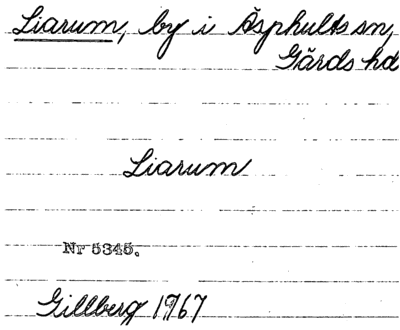 Liarum, by i Äsphults sn,
Gärds hd
Liarum
Nr 5345.
Gillberg 1767